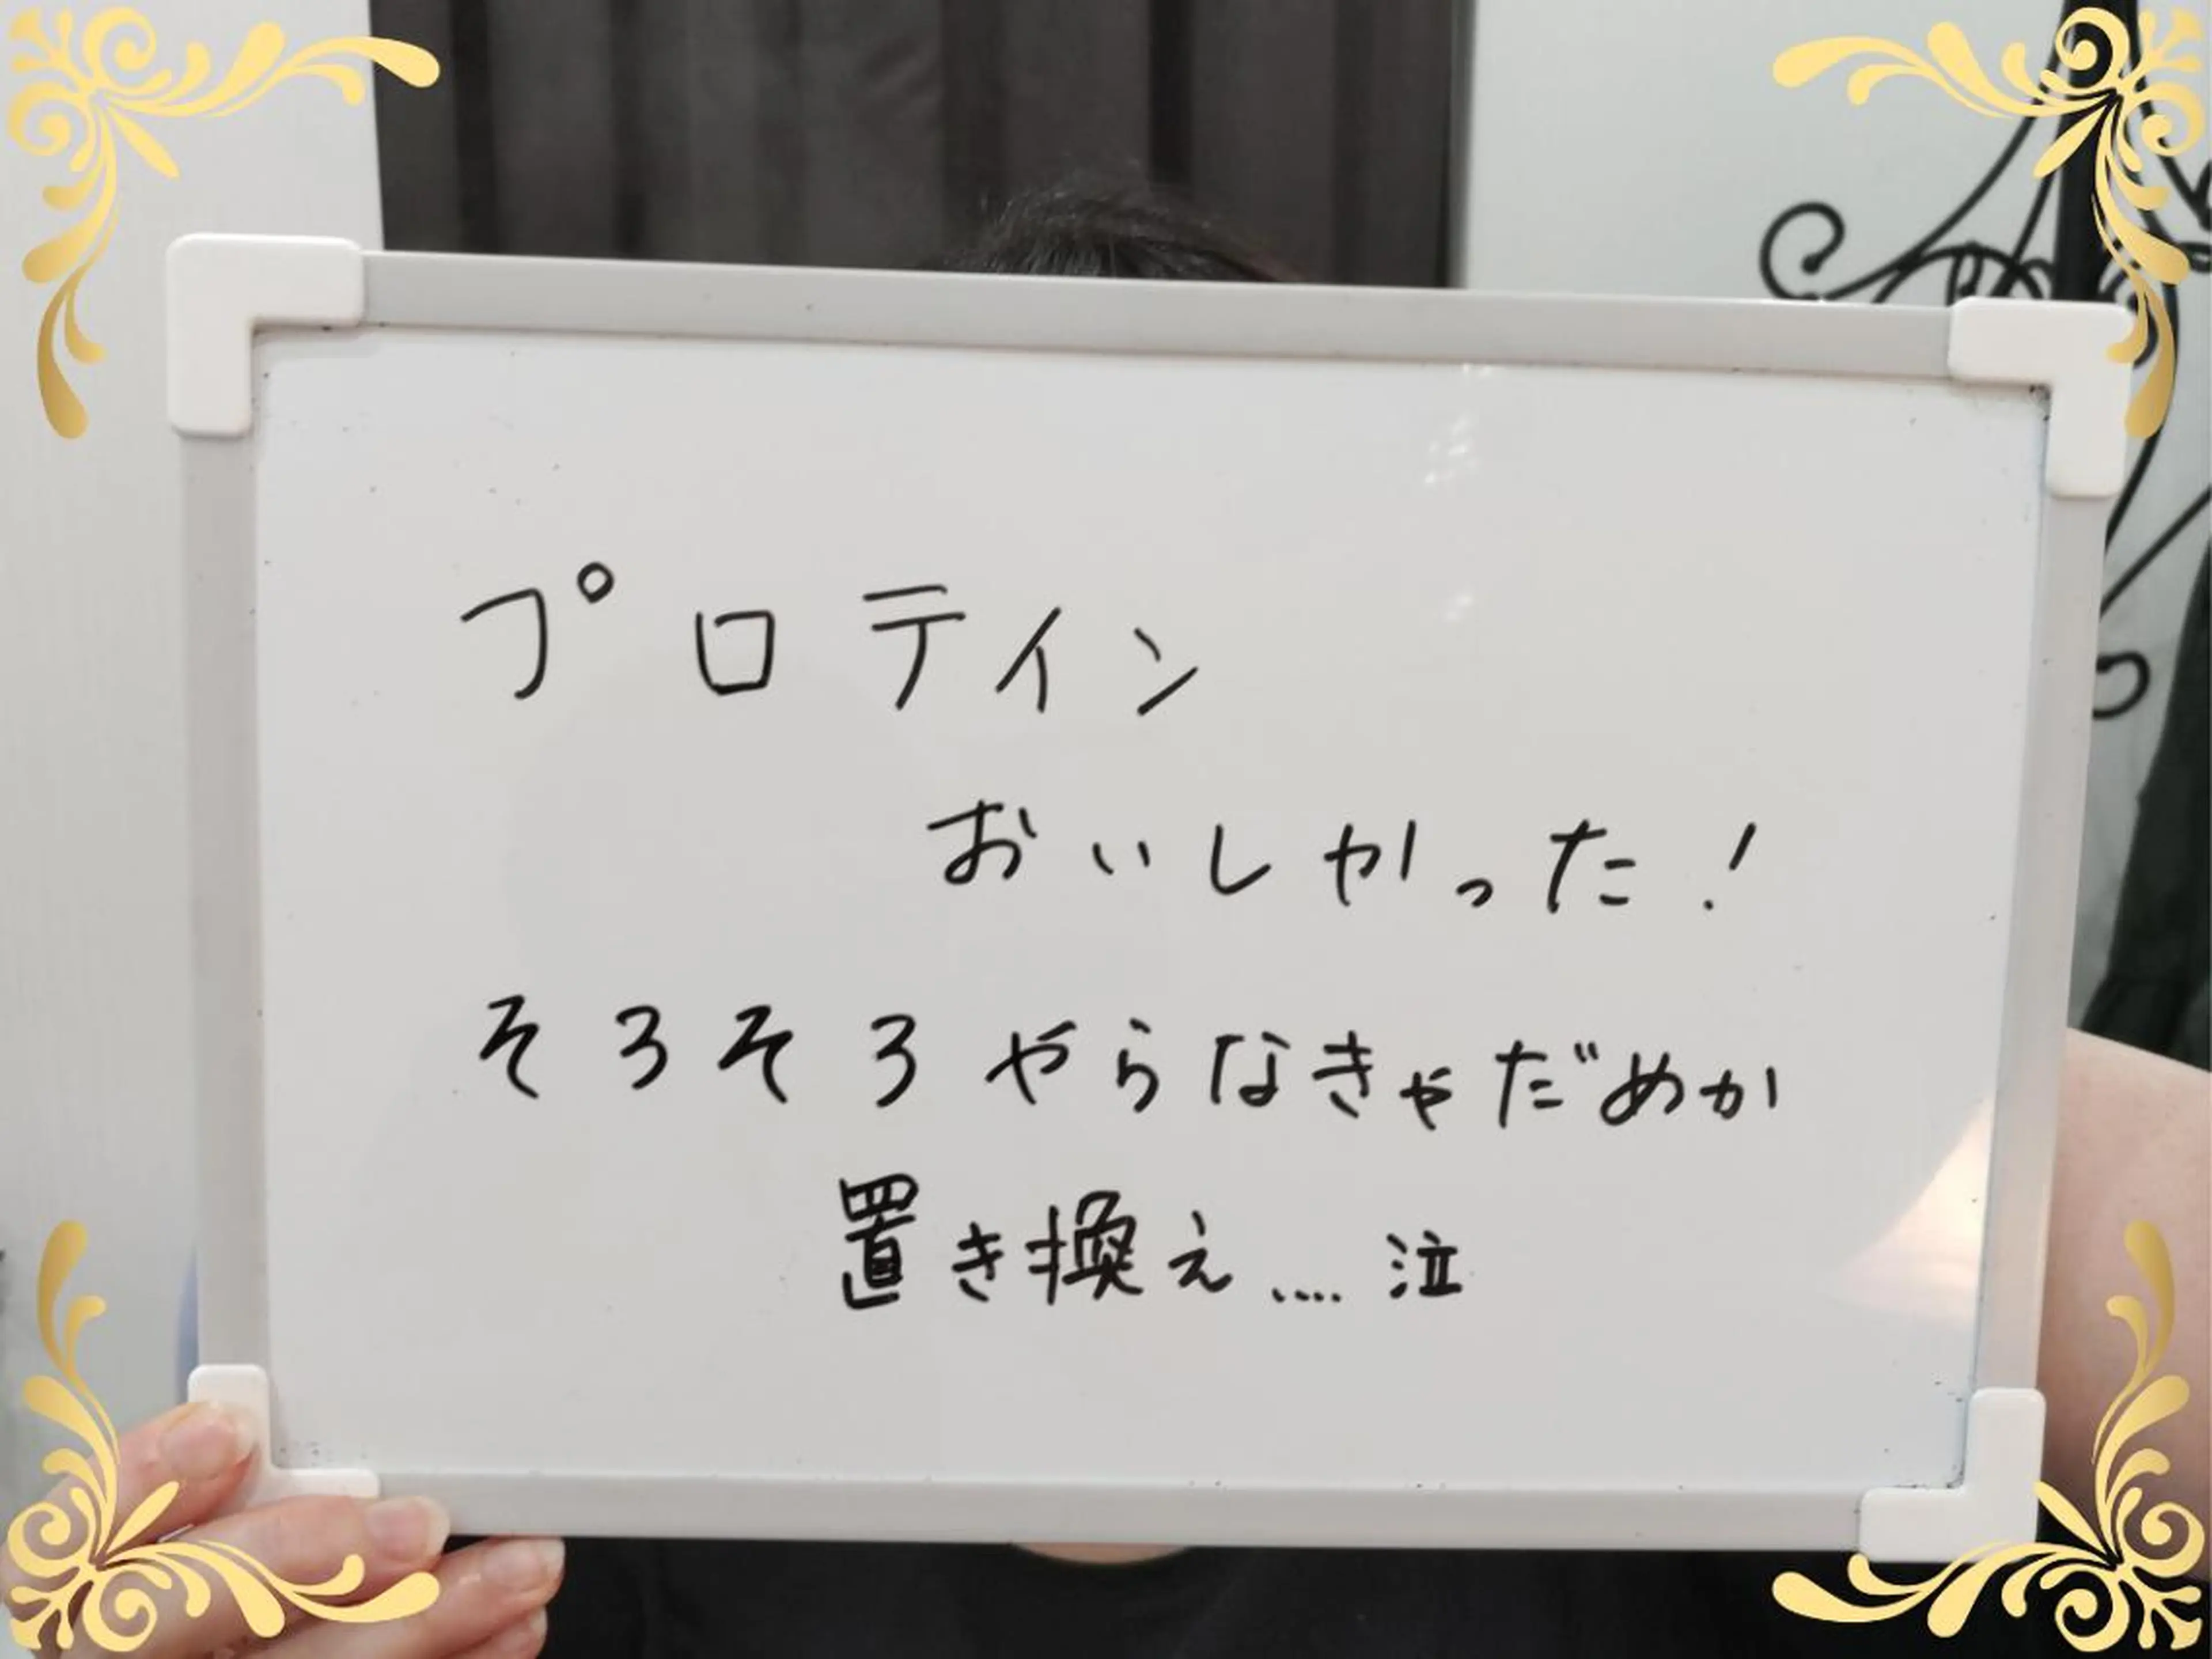 プロテイン
おいしかった!
そろそろやらなきゃだめか
置き換え....泣